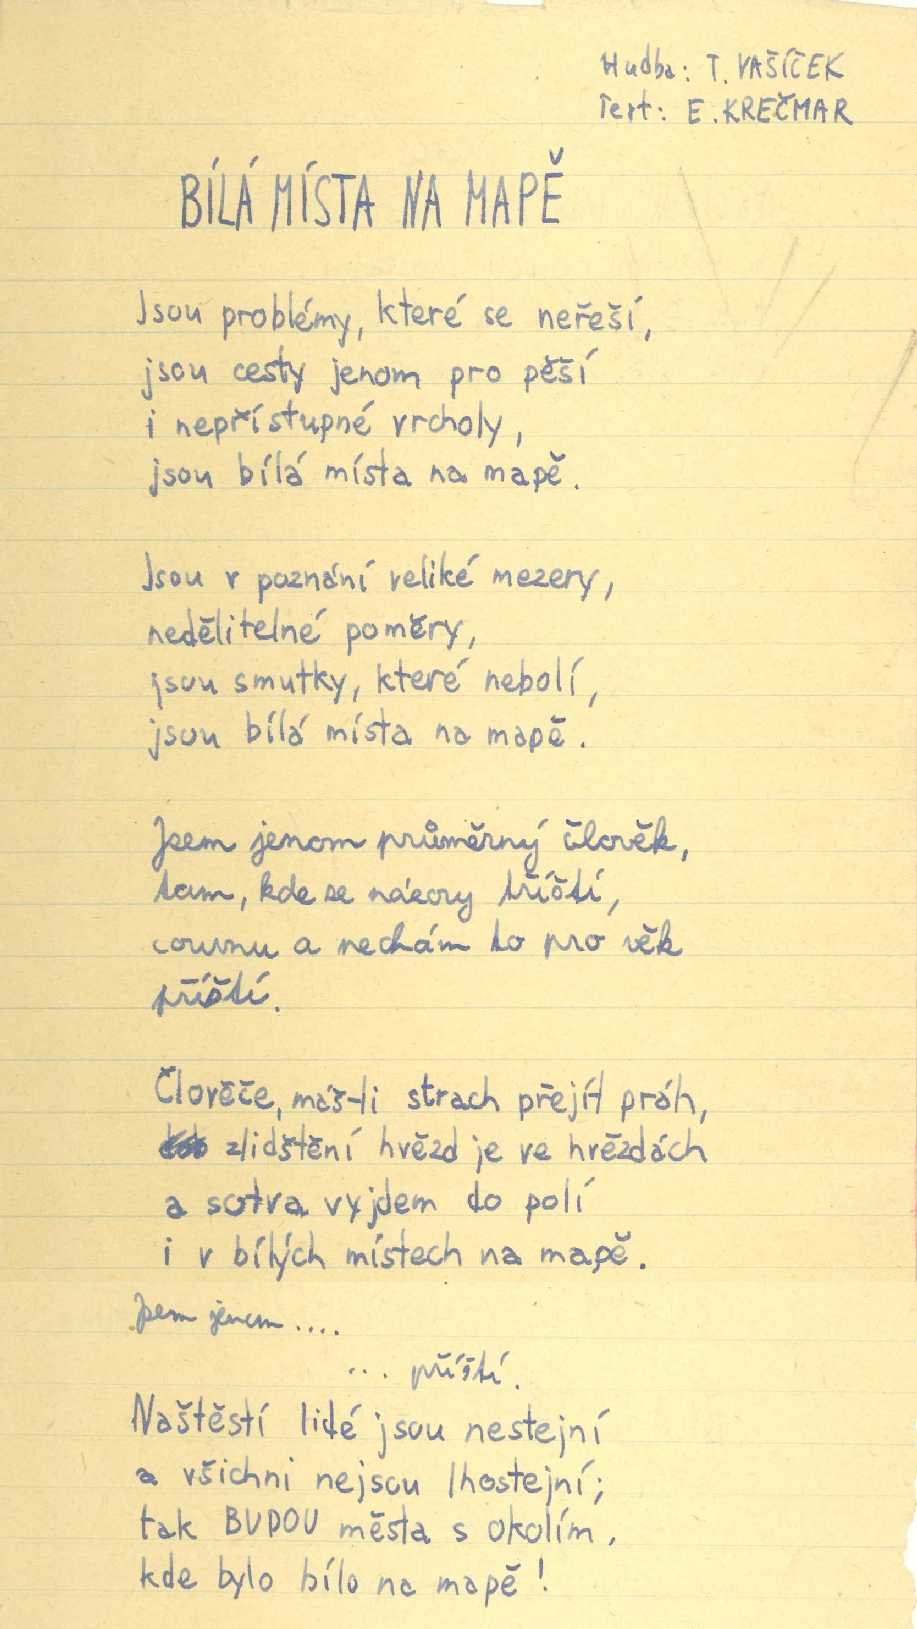 Hudba: T. VAŠÍČEK
Text: E. KREČMAR
BÍLÁ MÍSTA NA MAPĚ
Jsou problémy, které se neřeší,
jsou cesty jenom pro pěší
i nepřístupné vrcholy,
jsou bílá místa na mapě.
Jsou v poznání veliké mezery,
nedělitelné poměry,
jsou smutky, které nebolí,
jsou bílá místa na mapě.
Jsem jenom průměrný člověk,
tam, kde se názory tříští,
couvnu a nechám to pro věk
příští.
Člověče, máš-li strach přejít práh,
zlidštění hvězd je ve hvězdách
a sotva vyjdem do polí
i v bílých místech na mapě.
Jsem jenom ....
... příští.
Naštěstí lidé jsou nestejní
a všichni nejsou lhostejní;
tak BUDOU města s okolím,
kde bylo bílo na mapě!